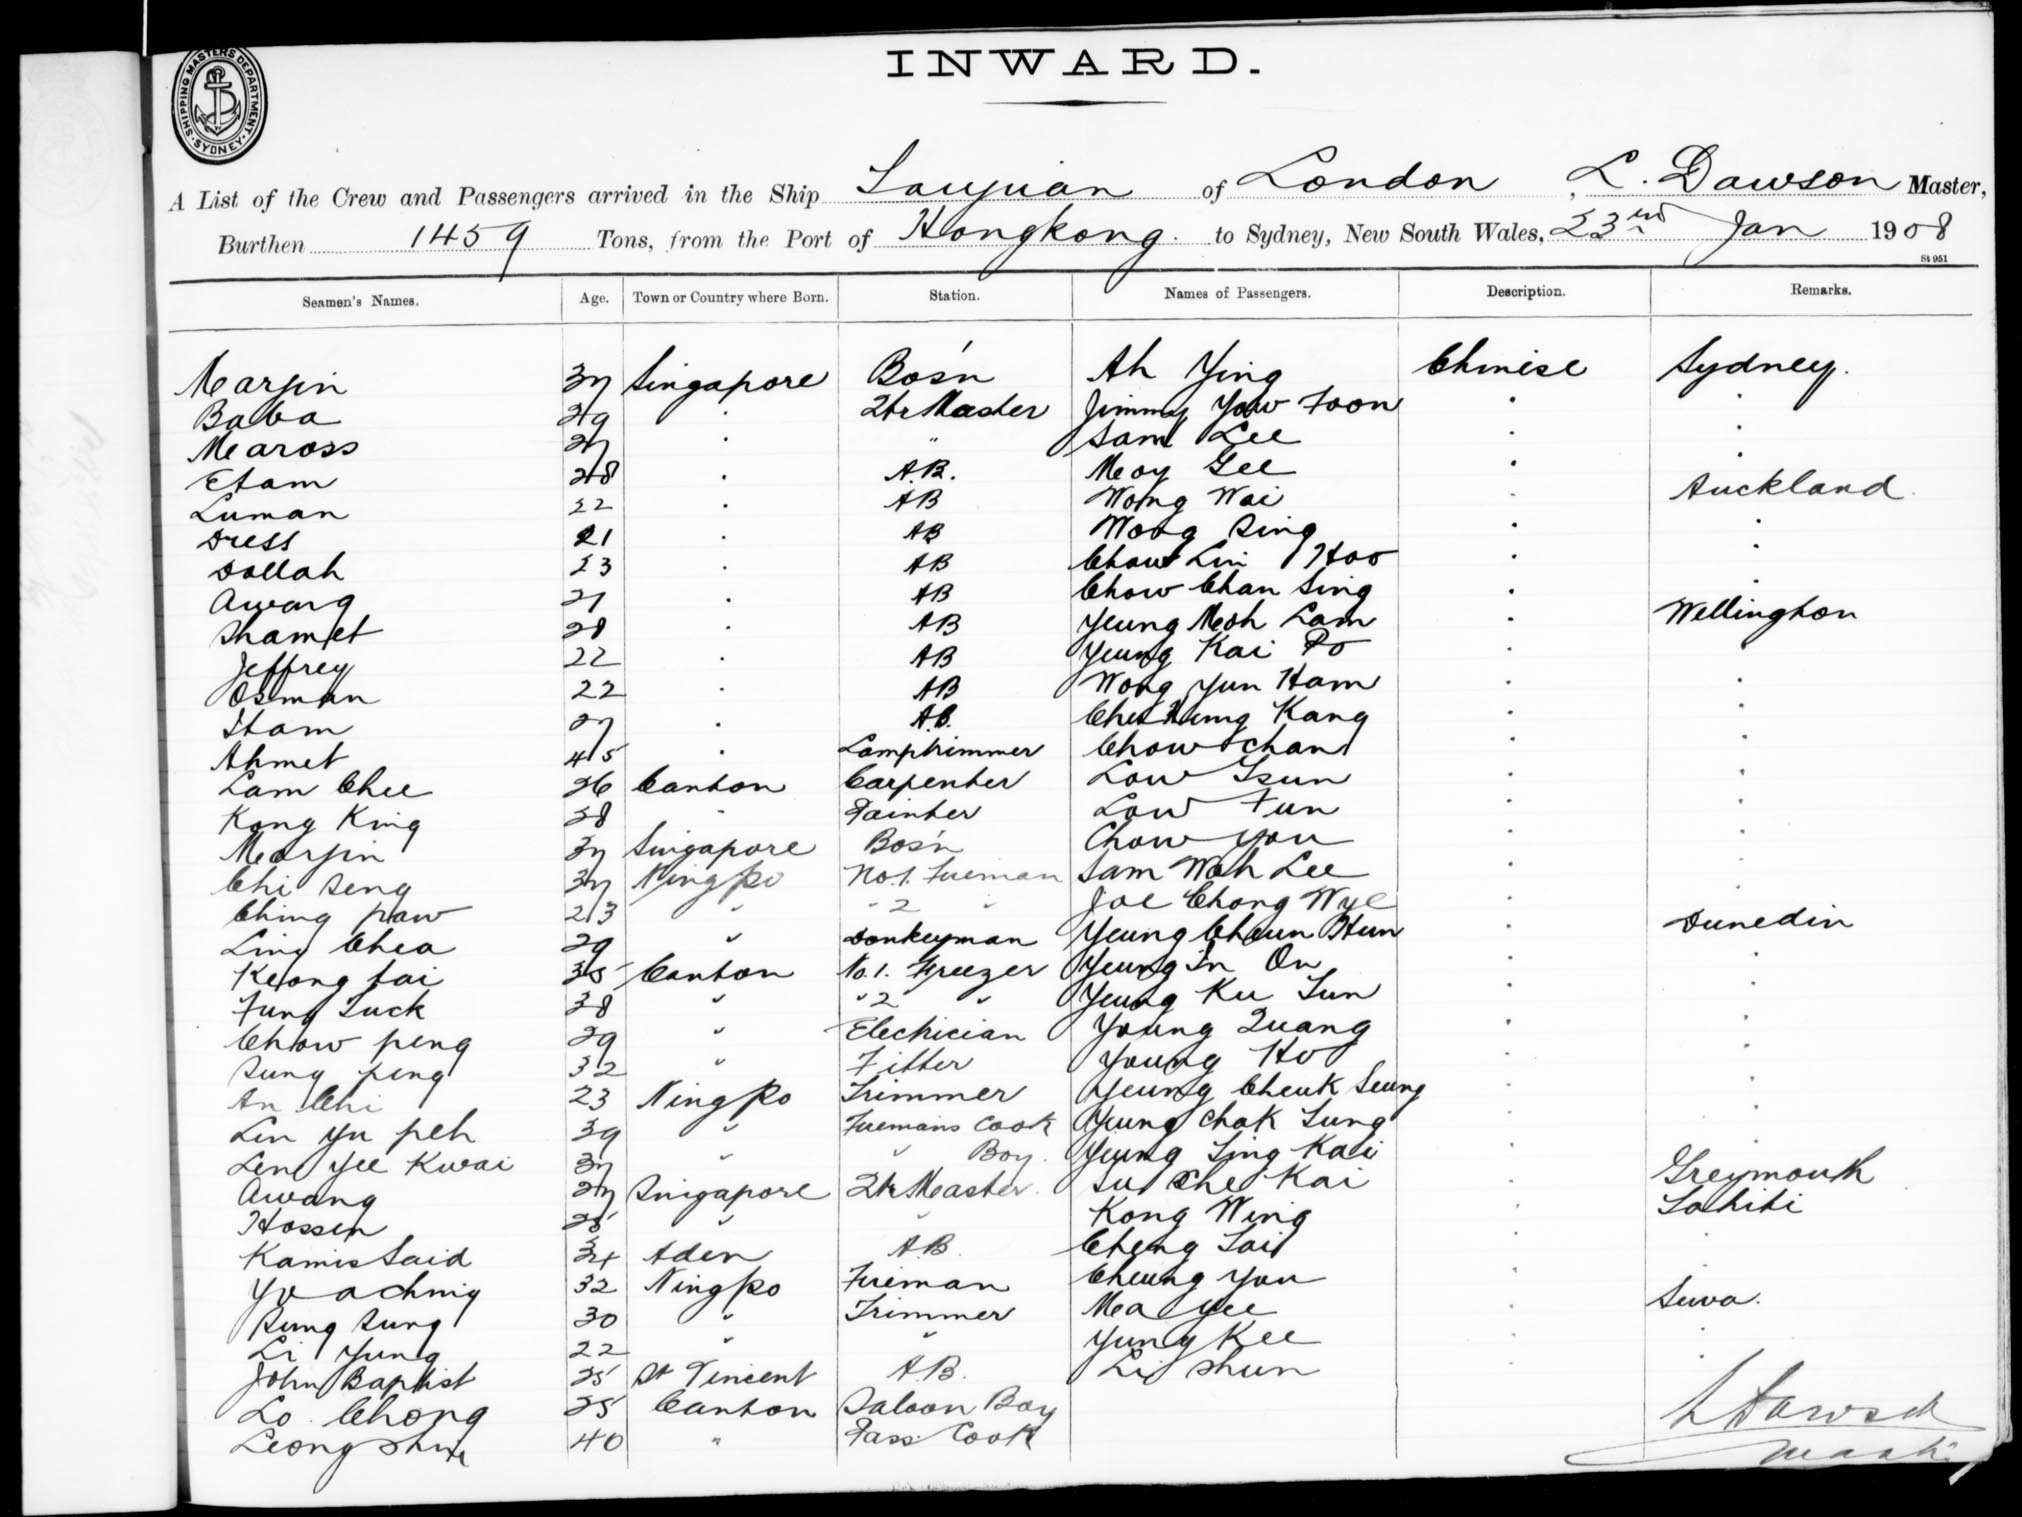 SHIPPING MASTERS DEPARTMENT. SYDNEY
INWARD.
A List of the Crew and Passengers arrived in the Ship Taiyuan of London, L. Dawson Master,
Burthen 1459 Tons, from the Port of Hongkong to Sydney, New South Wales, 23rd Jan 1908
St 951
Seamen's Names. Age. Town or Country where Born. Station. Names of Passengers. Description. Remarks.
Marjin 37 Singapore Bos'n Ah Ying Chinese Sydney.
Baba 29 " 2tr Master Jimmy Yow Foon " "
Meaross 27 " " Sam Lee " "
Etam 28 " A.B. Moy Gee " "
Luman 22 " AB Wong Wai " Auckland
Dress 21 " AB Wong Sing " "
Dollah 23 " AB Chow Lin Hoo " "
Awang 21 " AB Chow Chan Sing " "
Shamet 28 " AB Yeung Moh Lam " Wellington
Jeffrey 22 " AB Yeung Kai Po " "
Osman 22 " AB Wong Yun Ham " "
Itam 27 " A.B. Kang " "
Ahmet 45 " Lamptrimmer Chow Chan " "
Lam Chee 26 Canton Carpenter Low Tsun " "
Kong King 38 " Painter Low Fun " "
Marjin 37 Singapore Bos'n Chow You " "
Chi Seng 37 Ningpo No.1. Fireman Sam Wah Lee " "
Ching paw 23 " " 2 " Joe Chong Wye " "
Ling Chea 29 " Donkeyman Yeung Cheun Hun " Dunedin
Keong tai 35 Canton No. 1. Freezer Yeung In On " "
Fung Suck 38 " " 2 " Yeung Ku Sun " "
Chow peng 29 " Electrician Young Quang " "
Sung peng 32 " Fitter Young Ho " "
An Chi 23 Ningpo Trimmer Yeung Cheuk Seung " "
Lin Yu peh 39 " Firemans Cook Yeung Chak Sung " "
Lin Yee Kwai 37 " " Boy. Yeung Sing Kai " "
Awang 27 Singapore 2tr Master. Su She Kai " Greymouth
Hossen 25 " " Kong Wing " Tahiti
Kamis Said 34 Aden A.B. Cheng Tai " "
Yo a ching 32 Ningpo Fireman Cheung You " "
Sung Sung 30 " Trimmer Ma Yee " Suva.
Li Yung 22 " " Yung Kee " "
John Baptist 25 St Vincent A.B. Li Shun " "
Lo. Chong 25 Canton Saloon Boy
Leong 40 " Pass. Cook
L Dawson
Master